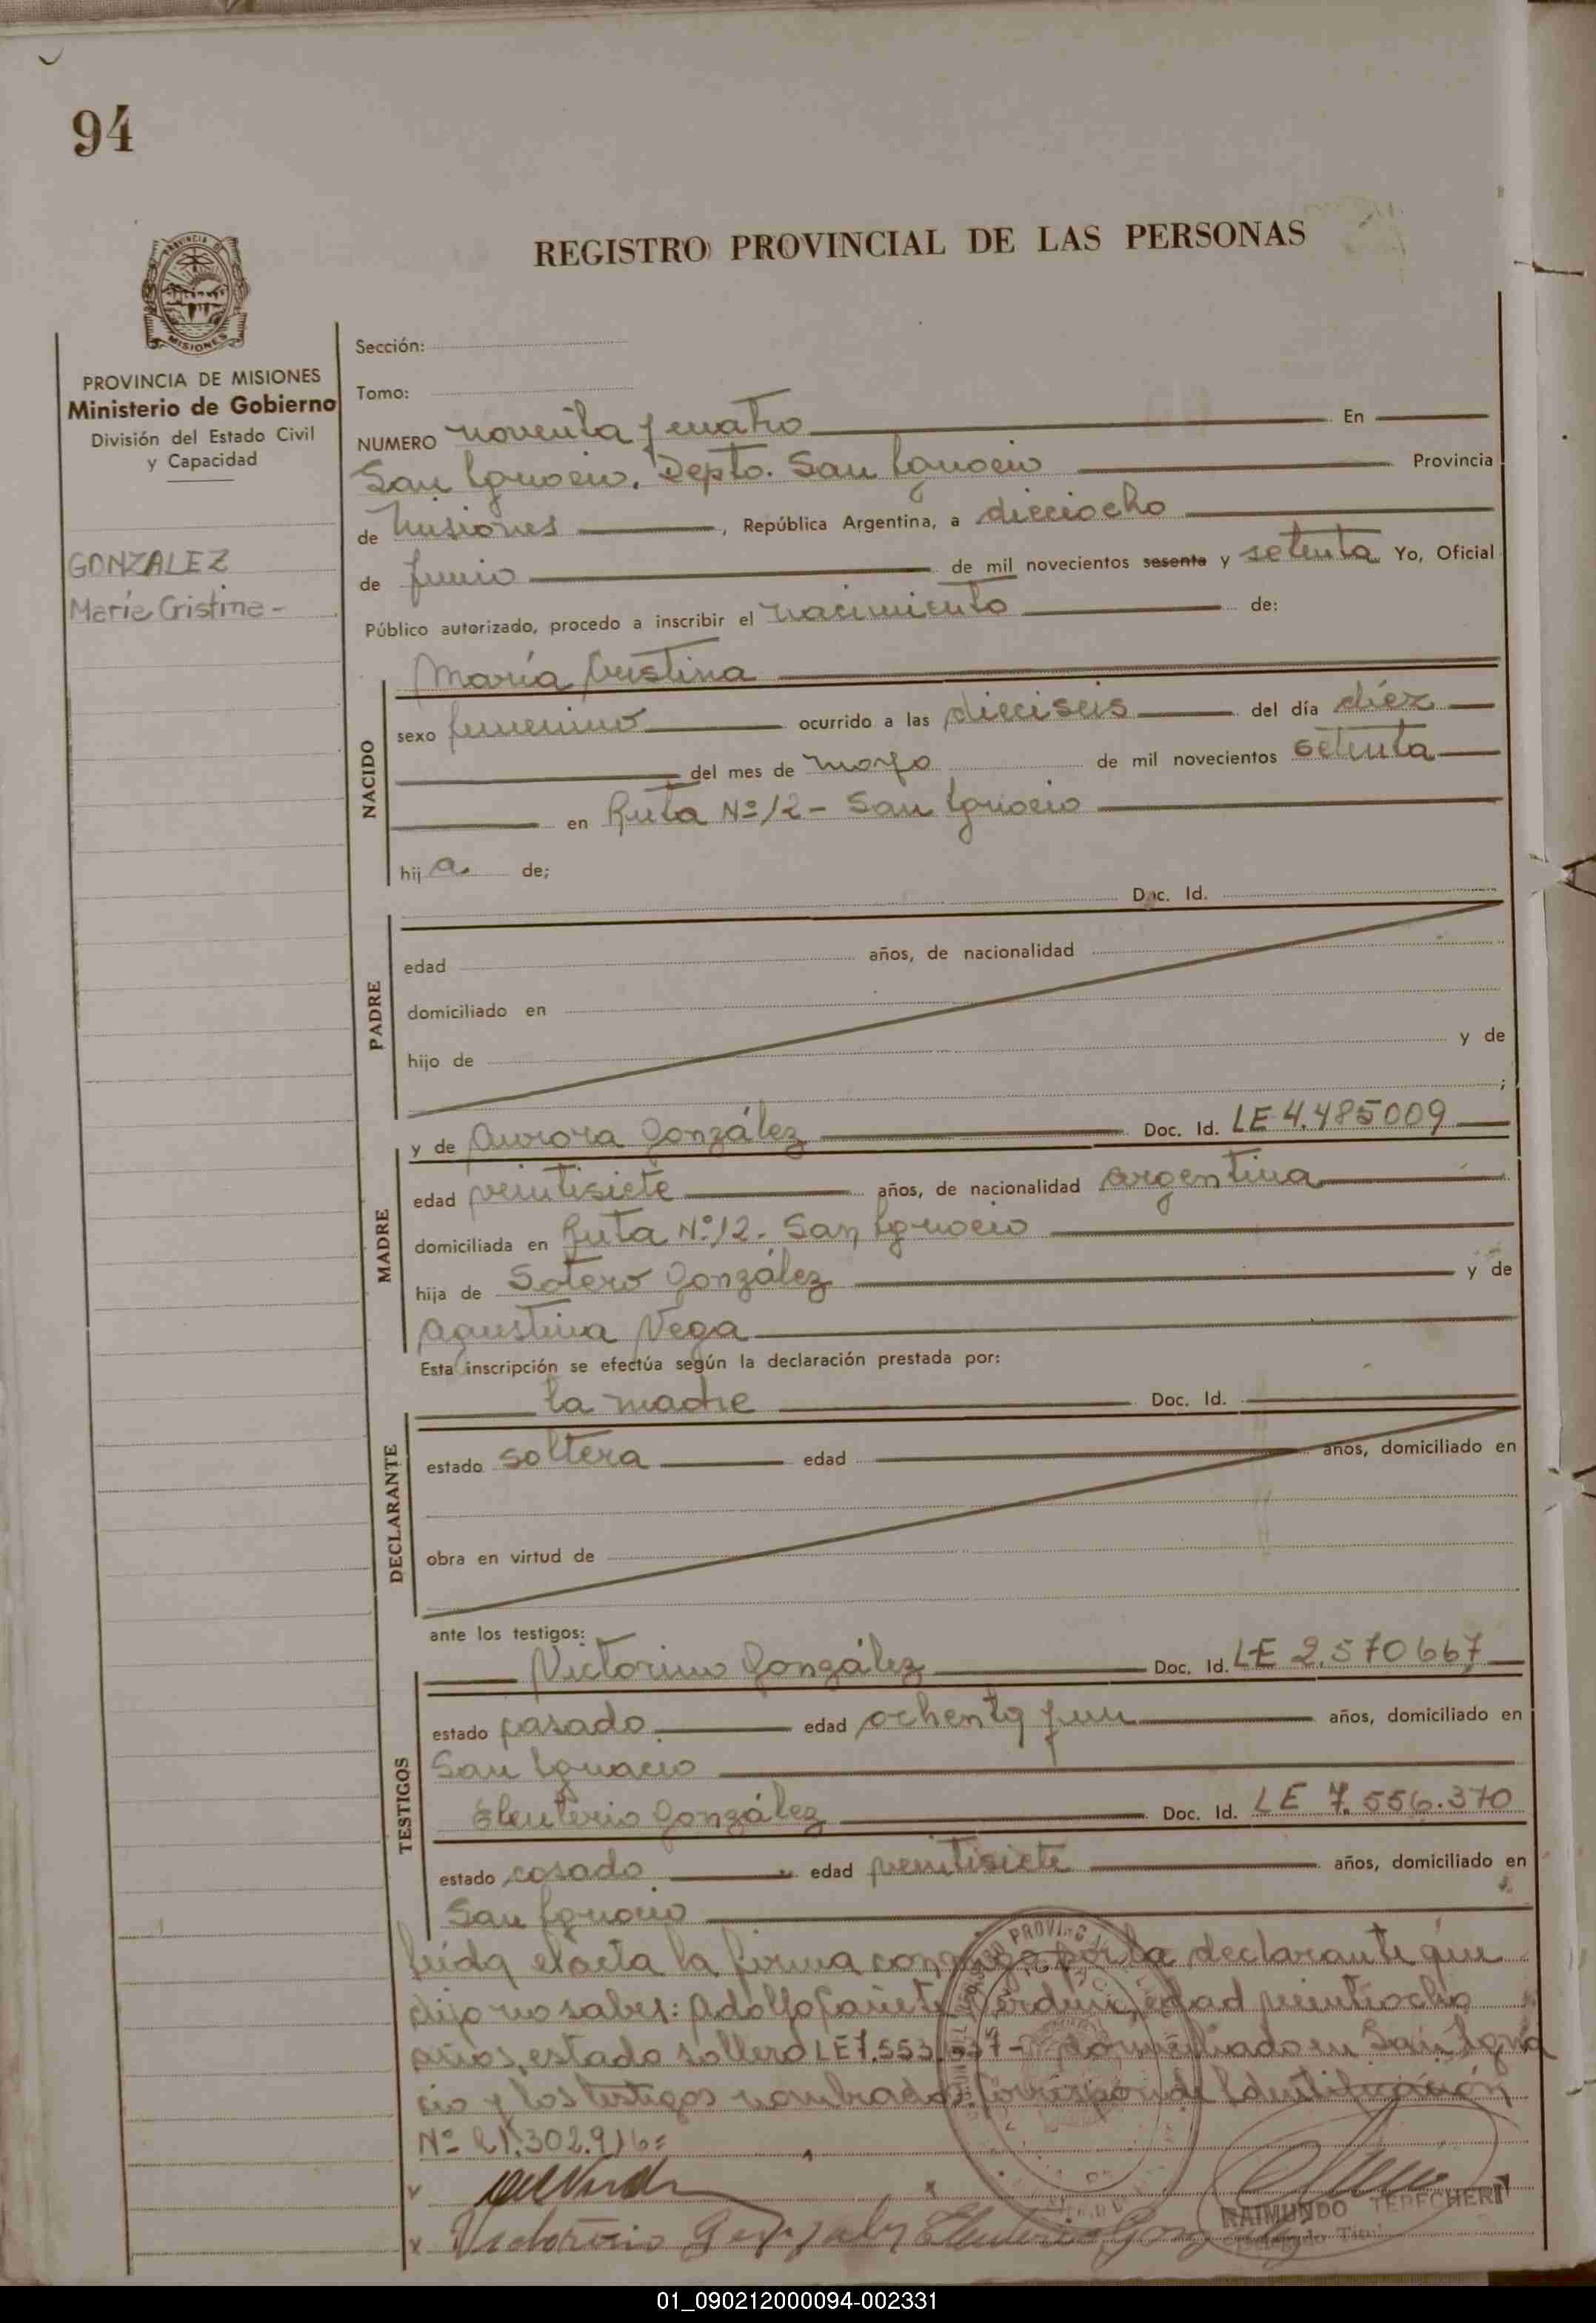 94
REGISTRO PROVINCIAL DE LAS PERSONAS
PROVINCIA DE MISIONES
Ministerio de Gobierno
División del Estado Civil
y Capacidad
GONZALEZ
María Cristina -
Sección:
Tomo:
NUMERO noventa y cuatro En
San Ignacio, Depto. San Ignacio Provincia
de Misiones, República Argentina, a dieciocho
de Junio de mil novecientos sesenta y setenta Yo, Oficial
Público autorizado, procedo a inscribir el nacimiento de:
NACIDO
María Cristina
sexo femenino ocurrido a las dieciseis del día diez
del mes de mayo de mil novecientos setenta
en Ruta Nº 12 - San Ignacio
hij a de;
PADRE
Doc. Id.
edad años, de nacionalidad
domiciliado en
hijo de y de
;
MADRE
y de Aurora González Doc. Id. LE 4.485009
edad veintisiete años, de nacionalidad argentina
domiciliada en Ruta Nº 12. San Ignacio
hija de Sotero González y de
Agustina Vega
Esta inscripción se efectúa según la declaración prestada por:
DECLARANTE
la madre Doc. Id.
estado soltera edad años, domiciliado en
obra en virtud de
ante los testigos:
TESTIGOS
Victorino González Doc. Id. LE 2.570667
estado casado edad ochenta y un años, domiciliado en
San Ignacio
Eleuterio González Doc. Id. LE 7.556.370
estado casado edad veintisiete años, domiciliado en
San Ignacio
leída el acta la firma conmigo por la declarante que
dijo no saber: Adolfo Cañete edad veintiocho
años, estado soltero LE 7.553. domiciliado en San Igna
cio y los testigos nombrados. Corresponde Identificación
Nº 21.302.916=
Victorino Gonzalez Eleuterio Gonzalez
RAIMUNDO TERECHERI
01_090212000094-002331